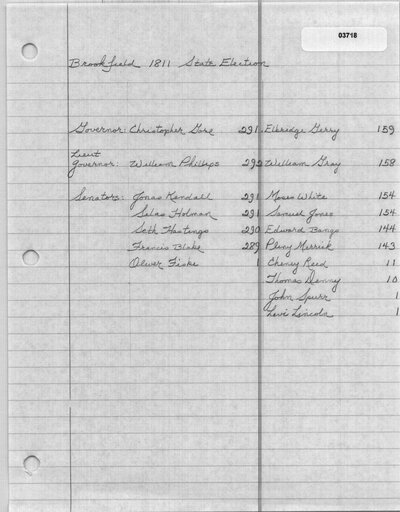 03718
Brookfield 1811 State Election
Governor: Christopher Gore 291 Elbridge Gerry 159
Lieut
Governor: William Phillips 292 William Gray 158
Senators: Jonas Kendall 291 Moses White 154
Salas Holman 291 Samuel Jones 154
Seth Hastings 290 Edward Bangs 144
Francis Blake 289 Pliny Merrick 143
Oliver Fiske 1 Cheney Reed 11
Thomas Denny 10
John Spurr 1
Levi Lincoln 1